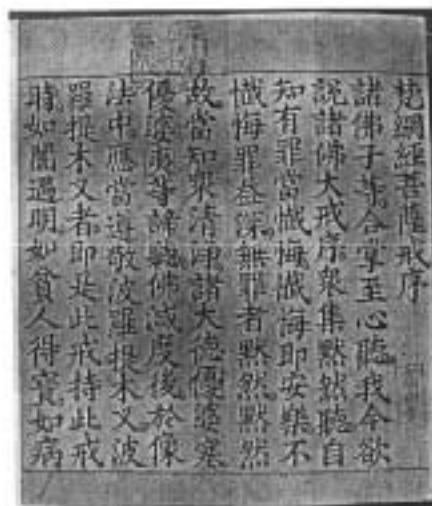 梵網經菩薩戒序
諸佛子等合掌至心聽我今欲
説諸佛大戒序衆集默然聽自
知有罪當懺悔懺悔即安樂不
懺悔罪益深無罪者默然默然
故當知衆清淨諸大德優婆塞
優婆夷等諦聽佛滅度後於像
法中應當遵敬波羅提木叉波
羅提木叉者即是此戒持此戒
時如闇遇明如貧人得寶如病